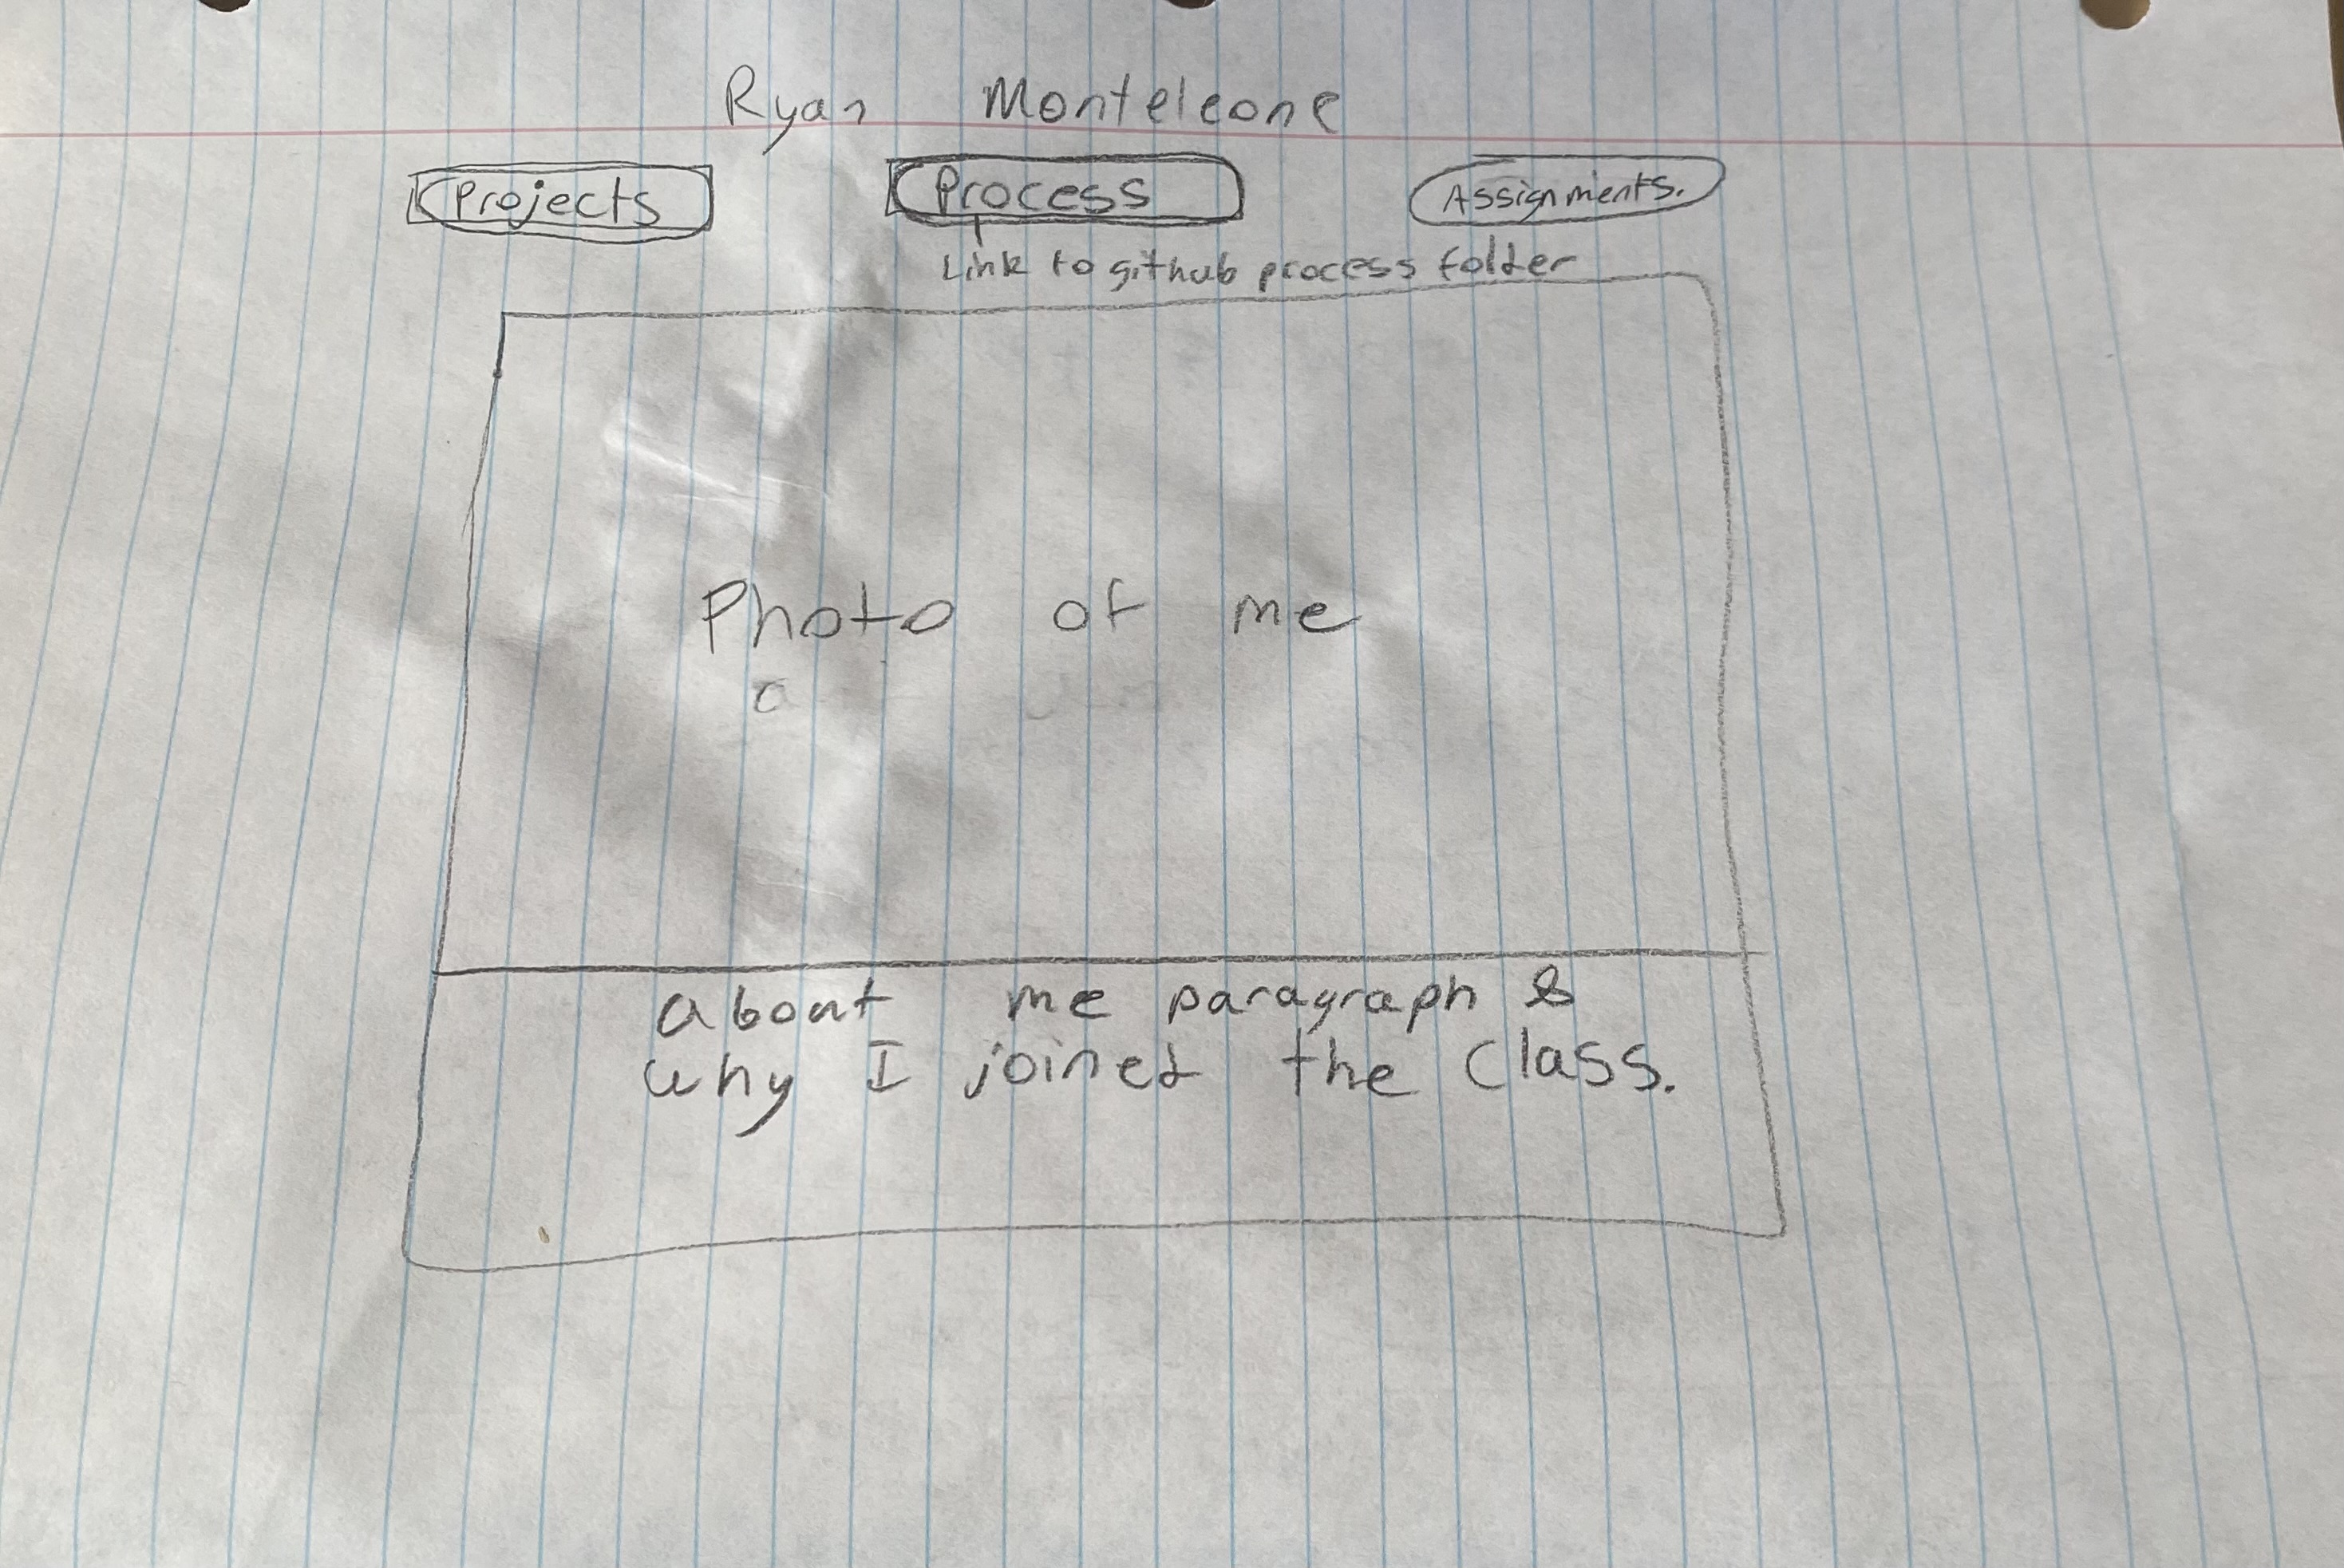 Ryan Monteleone
Projects
Process
Assignments.
Link to github process folder
Photo of me
about me paragraph &
why I joined the class.